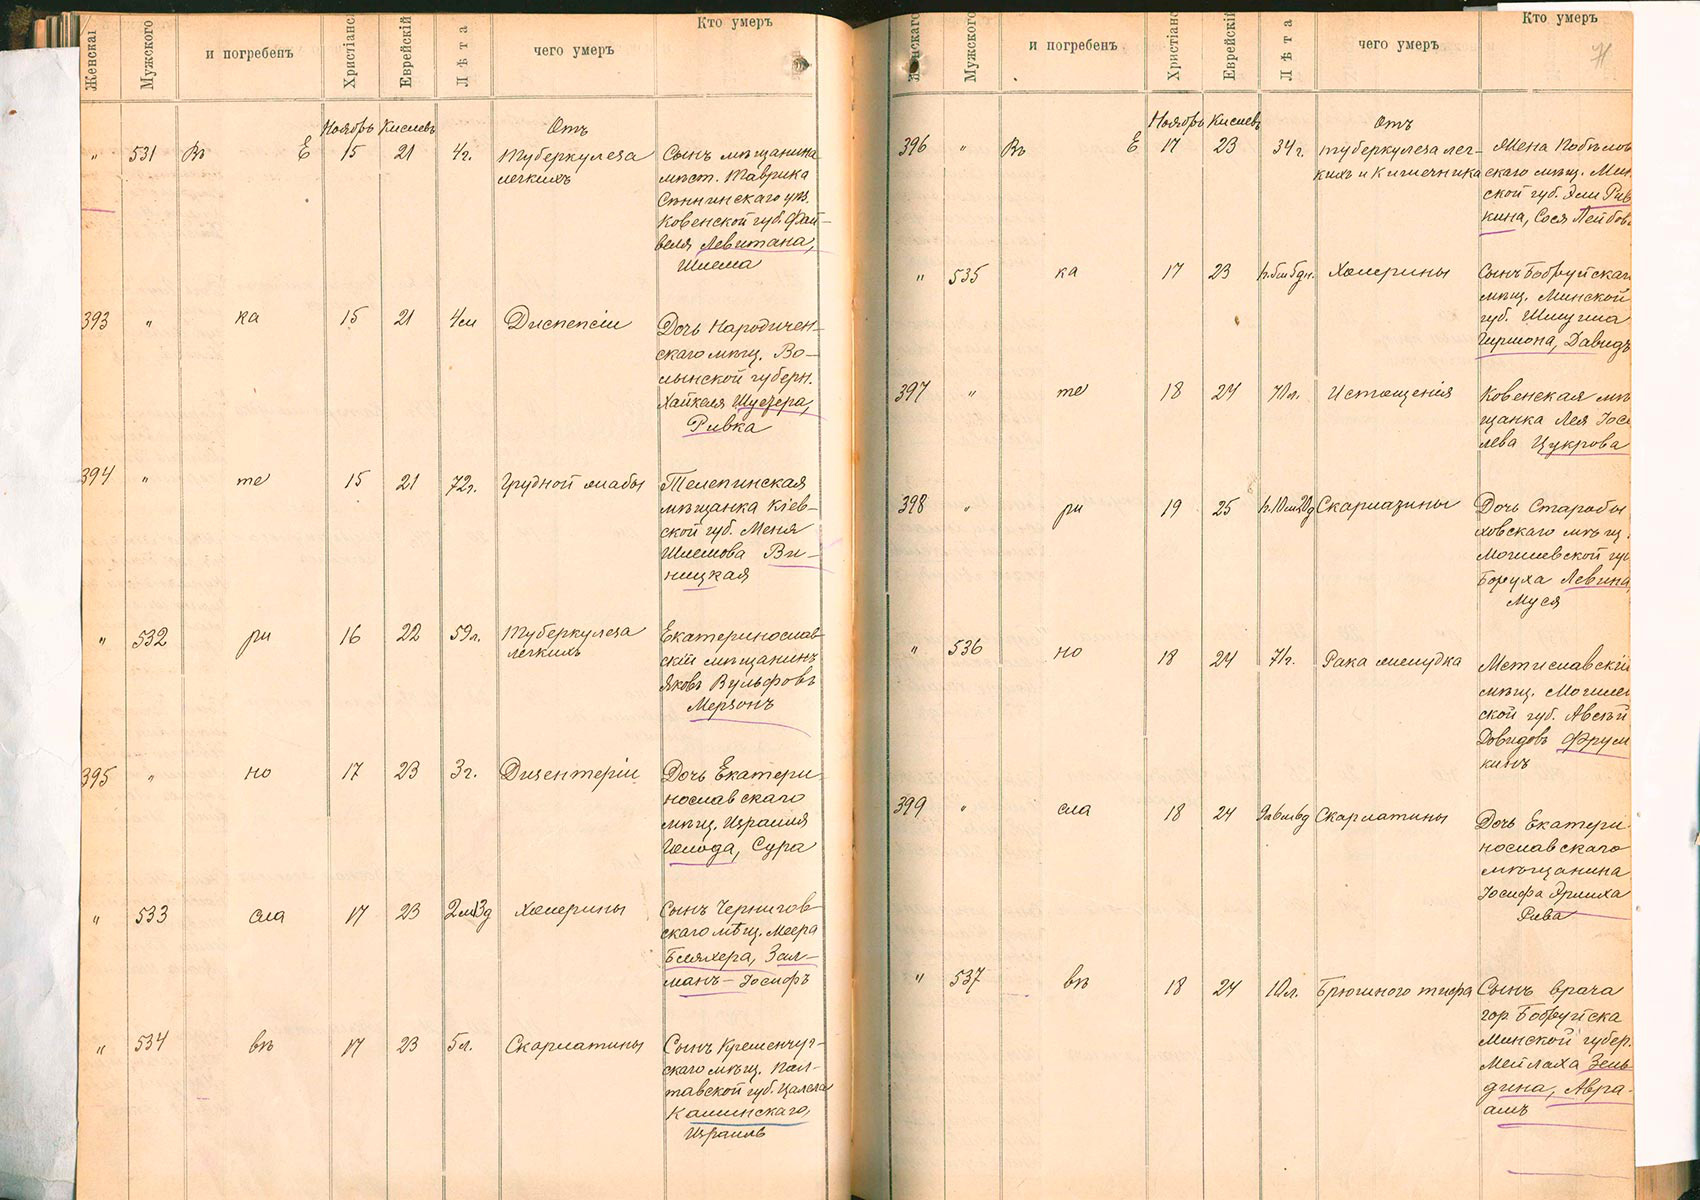 Женскаг
Мужского
и погребенъ
Христіанс
Еврейскій
Лѣта
чего умеръ
Кто умеръ
Ноябрь Кислевъ
Отъ
„ 531 Въ Е 15 21 4г. Туберкулеза
легкихъ
Сынъ мѣщанина
мѣст. Таврика
Ковенской губ. Фай-
веля Левитана,
Шлема
393 „ ка 15 21 4м Диспепсіи
Дочь Народичен-
скаго мѣщ. Во-
лынской губерн.
Хайкеля Шустера,
Ривка
394 „ те 15 21 72г. Грудной жабы
Телепинская
мѣщанка Кіев-
ской губ. Меня
Шлемова Ви-
ницкая
„ 532 ри 16 22 59л. Туберкулеза
легкихъ
Екатеринослав-
скій мѣщанинъ
Яковъ Вульфовъ
Мерзонъ
395 „ но 17 23 3г. Дизентеріи
Дочь Екатери
нославскаго
мѣщ. Израиля
Сура
„ 533 сла 17 23 2м13д Холерины
Сынъ Чернигов-
скаго мѣщ. Меера
Бляхера, Зал-
манъ-Іосифъ
„ 534 въ 17 23 5л. Скарлатины
Сынъ Кременчуг-
скаго мѣщ. Пол-
тавской губ.
Каминскаго,
Израиль
Женскаго
Мужского
и погребенъ
Христіанс
Еврейскій
Лѣта
чего умеръ
Кто умеръ
71
Ноябрь Кислевъ
Отъ
396 „ Въ Е 17 23 34г. Туберкулеза лег-
кихъ и кишечника
Жена
скаго мѣщ. Мин
ской губ. Эли Рив
кина, Сося Лейбов
„ 535 ка 17 23 Холерины
Сынъ Бобруйскаг
мѣщ. Минской
губ. Шлуима
Гиршона, Давидъ
397 „ те 18 24 70л. Истощенія
Ковенская мѣ
щанка Лея Іосе
лева Цукрова
398 „ ри 19 25 Скарлатины
Дочь Старобы
ховскаго мѣщ.
Могилевской гу
Боруха Левина,
Муся
„ 536 но 18 24 71г. Рака желудка
Мстиславскій
мѣщ. Могилев
ской губ.
Довидовъ Фрум
кинъ
399 „ сла 18 24 Скарлатины
Дочь Екатери
нославскаго
мѣщанина
Іосифа Эрлиха
Рива
„ 537 въ 18 24 10л. Брюшного тифа
Сынъ врача
гор. Бобруйска
Минской губер.
Мейлаха Зель
дина, Авра-
амъ